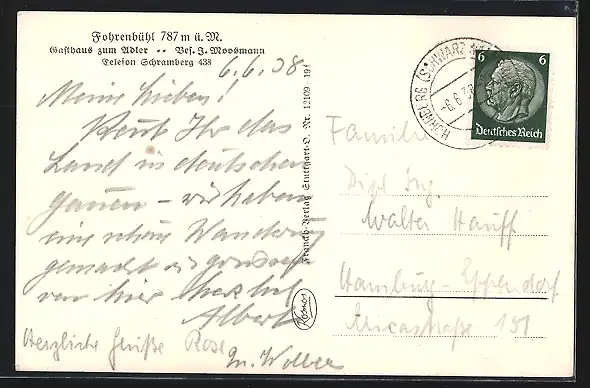 Fohrenbühl 787 m ü. M.
Gasthaus zum Adler •• Bes. J. Moosmann
Telefon Schramberg 438
6.6.38
Meine Lieben!
Kennt Ihr das
Land in deutschen
Gauen – wir haben
eine schöne Wanderung
gemacht
von hier herzlichst
Albert
Herzliche Grüße Rose
Franckh-Verlag Stuttgart-O. Nr. 12109 19f
Kosmos
HORNBERG (SCHWARZW
-6.6.38
6 6
Deutsches Reich
Familie
Dipl. Ing.
Walter Hauff
Hamburg-Eppendorf
Ericastraße 151